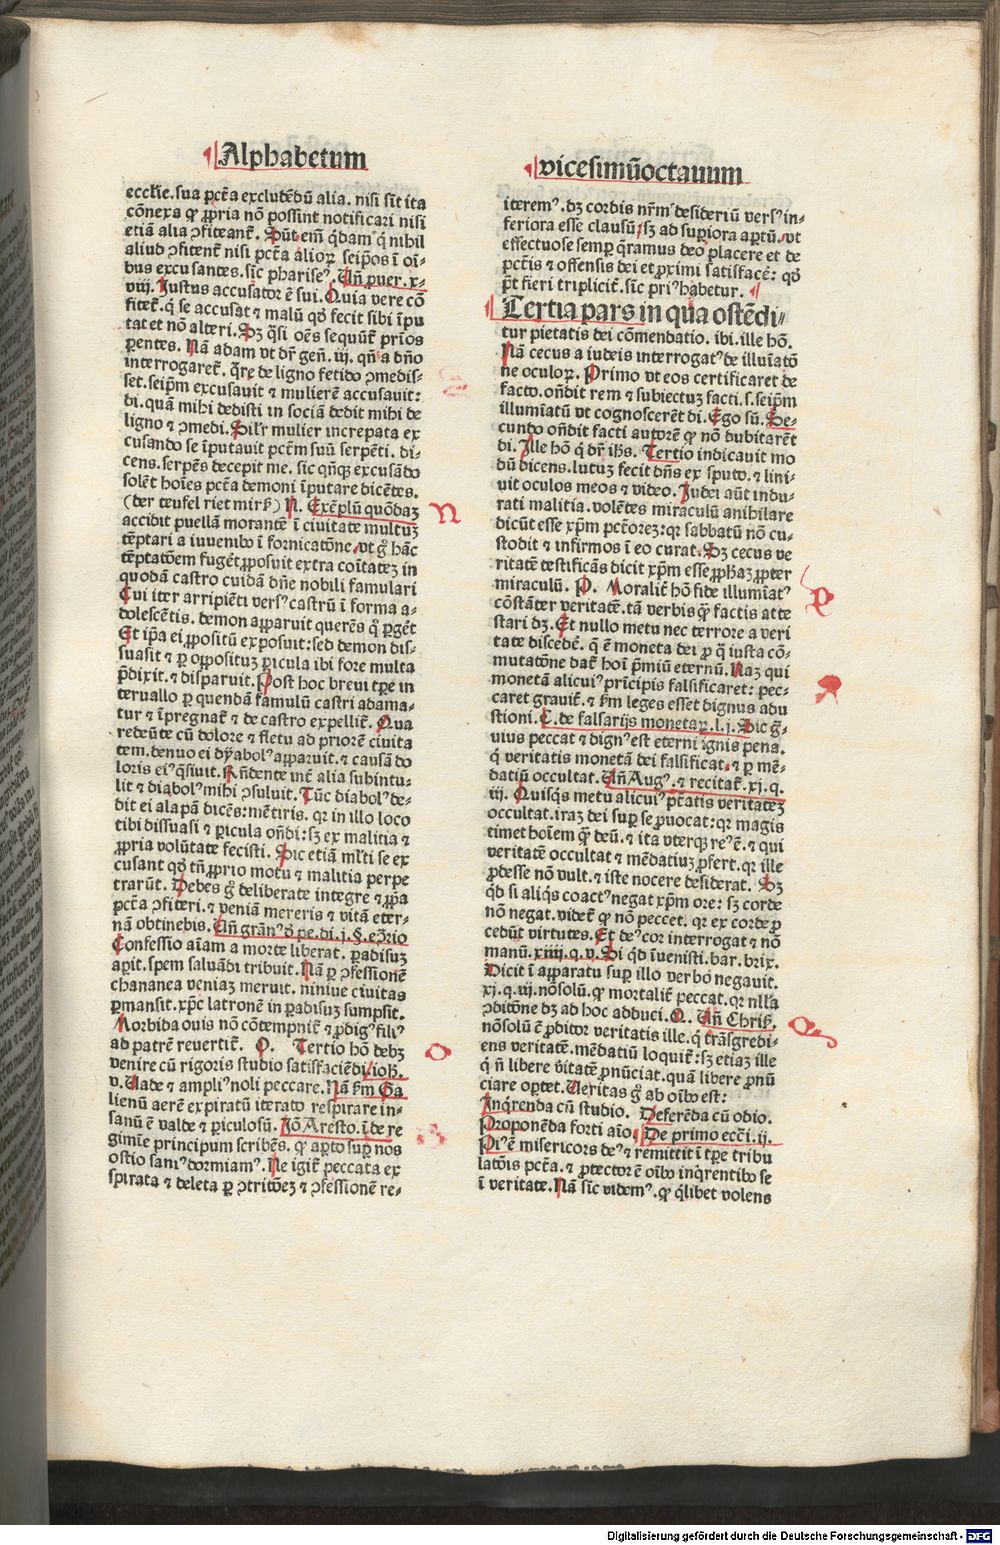 Alphabetum
eccl'ie. sua pctã excludẽdũ alia. nisi sit ita
cõnexa qꝙ ꝓpria nõ possint notificari nisi
etiã alia ꝯfiteant᷑. Sũt eni᷑ q̃dam q̃ nihil
aliud ꝯfitent᷑ nisi pctã alioꝝ seip̃os ĩ oĩ-
bus excusantes. sic̃ phariseꝰ. Uñ ꝓuer. x-
viij. Justus accusator ẽ sui. Quia vere cõ
fitet᷑. q̃ se accusat ⁊ malũ qd̃ fecit sibi ĩpu
tat et nõ alteri. Sꝫ q̃si oẽs sequũt᷑ prios
parentes. Nã adam vt dr̃ geñ. iij. qñ a dño
interrogaret᷑. q̃re de ligno fetido ꝯmedis-
set. seip̃m excusauit ⁊ mulierẽ accusauit:
di. quã mihi dedisti in sociã dedit mihi de
ligno ⁊ ꝯmedi. Silr̃ mulier increpata ex
cusando se ĩputauit pctm̃ suũ serpẽti. di-
cens. serpẽs decepit me. sic qñqꝫ excusãdo
solẽt hoĩes pctã demoni ĩputare dicẽtes.
(der teufel riet mirß) N. Exẽplũ quõdaꝫ
accidit puellã morantẽ ĩ ciuitate multuꝫ
tẽptari a iuuenibꝰ ĩ fornicatõne. vt g̊ hãc
tẽptatõem fugẽt ꝓposuit extra coĩtatẽ in
quodã castro cuidã dñe nobili famulari
Cui iter arripiẽti versꝰ castrũ ĩ forma a-
dolescẽtis. demon apparuit querẽs q̊ ꝑgẽt
Et ip̃a ei ꝓpositũ exposuit: sed demon dis-
suasit ⁊ ꝑ oppositũ ꝑicula ibi fore multa
p̃dixit. ⁊ disparuit. Post hoc breui tp̃e in
teruallo ꝑ quendã famulũ castri adama-
tur ⁊ ĩpregnat᷑ ⁊ de castro expellit᷑. Qua
redeũte cũ dolore ⁊ fletu ad priorẽ ciuita
tem. denuo ei dyabolꝰ apparuit. ⁊ causã do
loris eiꝰ q̃siuit. Rñdente int᷑ alia subintu-
lit ⁊ diabolꝰ mihi ꝯsuluit. Tũc diabolꝰ de-
dit ei alapã dicẽs: mẽtiris. qr in illo loco
tibi dissuasi ⁊ ꝑicula oñdi: sꝫ ex malitia ⁊
ꝓpria volũtate fecisti. Sic etiã ml̃ti se ex
cusant qd̃ tñ ꝓprio motu ⁊ malitia perpe
trarũt. Debes g̊ deliberate integre ⁊ ꝓp̃a
pctã ꝯfiteri. ⁊ veniã mereris ⁊ vitã eter-
nã obtinebis. Uñ grãnꝰ d̃ pe. di. j. §. eꝯ̃rio
Confessio aĩam a morte liberat. ꝑadisuꝫ
aꝑit. spem saluãdi tribuit. Nã ꝑ ꝯfessionẽ
chananea veniaꝫ meruit. niniue ciuitas
ꝑmansit. xp̃c latronẽ in ꝑadisuꝫ sumpsit.
Morbida ouis nõ cõtempnit᷑ ⁊ ꝓdigꝰ filiꝰ
ad patrẽ reuertit᷑. O. Tertio hõ debꝫ
venire cũ rigoris studio satisfaciẽdi. ioh̃.
v. Uade ⁊ ampliꝰ noli peccare. Nã ẜm Ga
lienũ aerẽ expiratũ iterato respirare in-
sanũ ẽ valde ⁊ ꝑiculosũ. Jõ Aresto. ĩ de re
gimĩe principum scribẽs. qꝙ aꝑto suꝑ nos
ostio saniꝰ dormiamꝰ. Ne igit᷑ peccata ex
spirata ⁊ deleta ꝑ ꝯtritõeꝫ ⁊ ꝯfessionẽ re-
N
O
vicesimũoctauum
iteremꝰ. dꝫ cordis nr̃m desideriũ versꝰ in-
feriora esse clausũ sꝫ ad suꝑiora aꝑtũ. vt
effectuose semꝑ q̃ramus deo placere et de
pctĩs ⁊ offensis dei et ꝓximi satisfacẽ: qd̃
p̃t fieri triplicit᷑. sic priꝰ habetur.
Tertia pars in qua ostẽdi-
tur pietatis dei cõmendatio. ibi. ille hõ.
Nã cecus a iudeis interrogatꝰ de illuĩatõ
ne oculoꝝ. Primo vt eos certificaret de
facto. oñdit rem ⁊ subiectuꝫ facti. s. seip̃m
illumĩatũ vt cognoscerẽt di. Ego sũ. Se-
cundo oñdit facti autorẽ qꝙ nõ dubitarẽt
di. Jlle hõ q̃ dr̃ ih̃s. Tertio indicauit mo
dũ dicens. lutuꝫ fecit dñs ex sputo. ⁊ lini-
uit oculos meos ⁊ video. Judei aũt indu-
rati malitia. volẽtes miraculũ anihilare
dicũt esse xp̃m pctõreꝫ: qr sabbatũ nõ cu-
stodit ⁊ infirmos ĩ eo curat. Sꝫ cecus ve
ritatẽ testificãs dicit xp̃m esse ꝓphãꝫ ꝓpter
miraculũ. P. Moralit᷑ hõ fide illumĩatꝰ
cõstãter veritatẽ. tã verbis qꝙ factis atte
stari dꝫ. Et nullo metu nec terrore a veri
tate discedẽ. q̃ ẽ moneta dei ꝑ q̃ iusta cõ-
mutatõne dat᷑ hoĩ p̃miũ eternũ. Naꝫ qui
monetã alicuiꝰ prĩcipis falsificaret: pec-
caret grauit᷑. ⁊ ẜm leges esset dignus adu
stioni. C. de falsarijs monetaꝝ. l. j. Sic g̃-
uius peccat ⁊ dignꝰ est eterni ignis pena.
q̃ veritatis monetã dei falsificat. ⁊ ꝑ mẽ-
datiũ occultat. Uñ Augꝰ. ⁊ recitat᷑. xj. q.
iij. Quisq̃s metu alicuiꝰ ptãtis veritateꝫ
occultat. iraꝫ dei suꝑ se ꝓuocat: qr magis
timet hoĩem qꝙ deũ. ⁊ ita vterqꝫ reꝰ ẽ. ⁊ qui
veritatẽ occultat ⁊ mẽdatiuꝫ ꝓfert. qr ille
ꝓdesse nõ vult. ⁊ iste nocere desiderat. Sꝫ
qd̃ si aliq̃s coactꝰ negat xp̃m ore: sꝫ corde
nõ negat. videt᷑ qꝙ nõ peccet. qr ex corde ꝓ
cedũt virtutes. Et deꝰ cor interrogat ⁊ nõ
manũ. xiiij. q. v. Si qd̃ ĩuenisti. bar. brix.
Dicit ĩ apparatu suꝑ illo verbo negauit.
xj. q. iij. nõsolũ. qꝙ mortalit᷑ peccat. qr nl̃la
ꝯditõne dꝫ ad hoc adduci. Q. Uñ Chriß.
nõsolũ ẽ ꝓditor veritatis ille. q̃ trãsgredi-
ens veritatẽ. mẽdatiũ loquit᷑: sꝫ etiaꝫ ille
q̃ ñ libere v̾itatẽ ꝓnũciat. quã libere ꝓnũ
ciare oꝑtet. Ueritas g̊ ab oĩbꝰ est:
Jnq̃renda cũ studio. Deferẽda cũ odio.
Proponẽda forti aĩo. De primo ecc̃i. ij.
Piꝰ ẽ misericors deꝰ ⁊ remittit ĩ tp̃e tribu
latõis pctã. ⁊ ꝓtector ẽ oĩbꝰ inq̃rentibꝰ se
ĩ veritate. Nã sic̃ videmꝰ. qꝙ q̃libet volens
P
Q
Digitalisierung gefördert durch die Deutsche Forschungsgemeinschaft - DFG